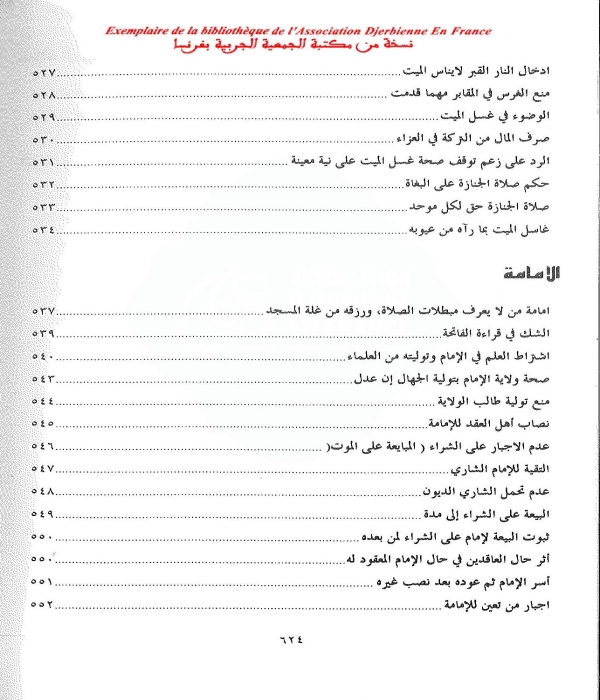 Exemplaire de la bibliothèque de l'Association Djerbienne En France
نسخة من مكتبة الجمعية الجربية بفرنسا
ادخال النار القبر لايناس الميت ٥٢٧
منع الغرس في المقابر مهما قدمت ٥٢٨
الوضوء في غسل الميت ٥٢٩
صرف المال من التركة في العزاء ٥٣٠
الرد على زعم توقف صحة غسل الميت على نية معينة ٥٣١
حكم صلاة الجنازة على البغاة ٥٣٢
صلاة الجنازة حق لكل موحد ٥٣٣
غاسل الميت بما رآه من عيوبه ٥٣٤
الإمامة
امامة من لا يعرف مبطلات الصلاة، ورزقه من غلة المسجد ٥٣٧
الشك في قراءة الفاتحة ٥٣٩
اشتراط العلم في الإمام وتوليته من العلماء ٥٤٠
صحة ولاية الإمام بتولية الجهال إن عدل ٥٤٣
منع تولية طالب الولاية ٥٤٤
نصاب أهل العقد للإمامة ٥٤٥
عدم الاجبار على الشراء ( المبايعة على الموت( ٥٤٦
التقية للإمام الشاري ٥٤٧
عدم تحمل الشاري الديون ٥٤٨
البيعة على الشراء إلى مدة ٥٤٩
ثبوت البيعة لإمام على الشراء لمن بعده ٥٥٠
أثر حال العاقدين في حال الإمام المعقود له ٥٥٠
أسر الإمام ثم عوده بعد نصب غيره ٥٥١
اجبار من تعين للإمامة ٥٥٢
٦٢٤